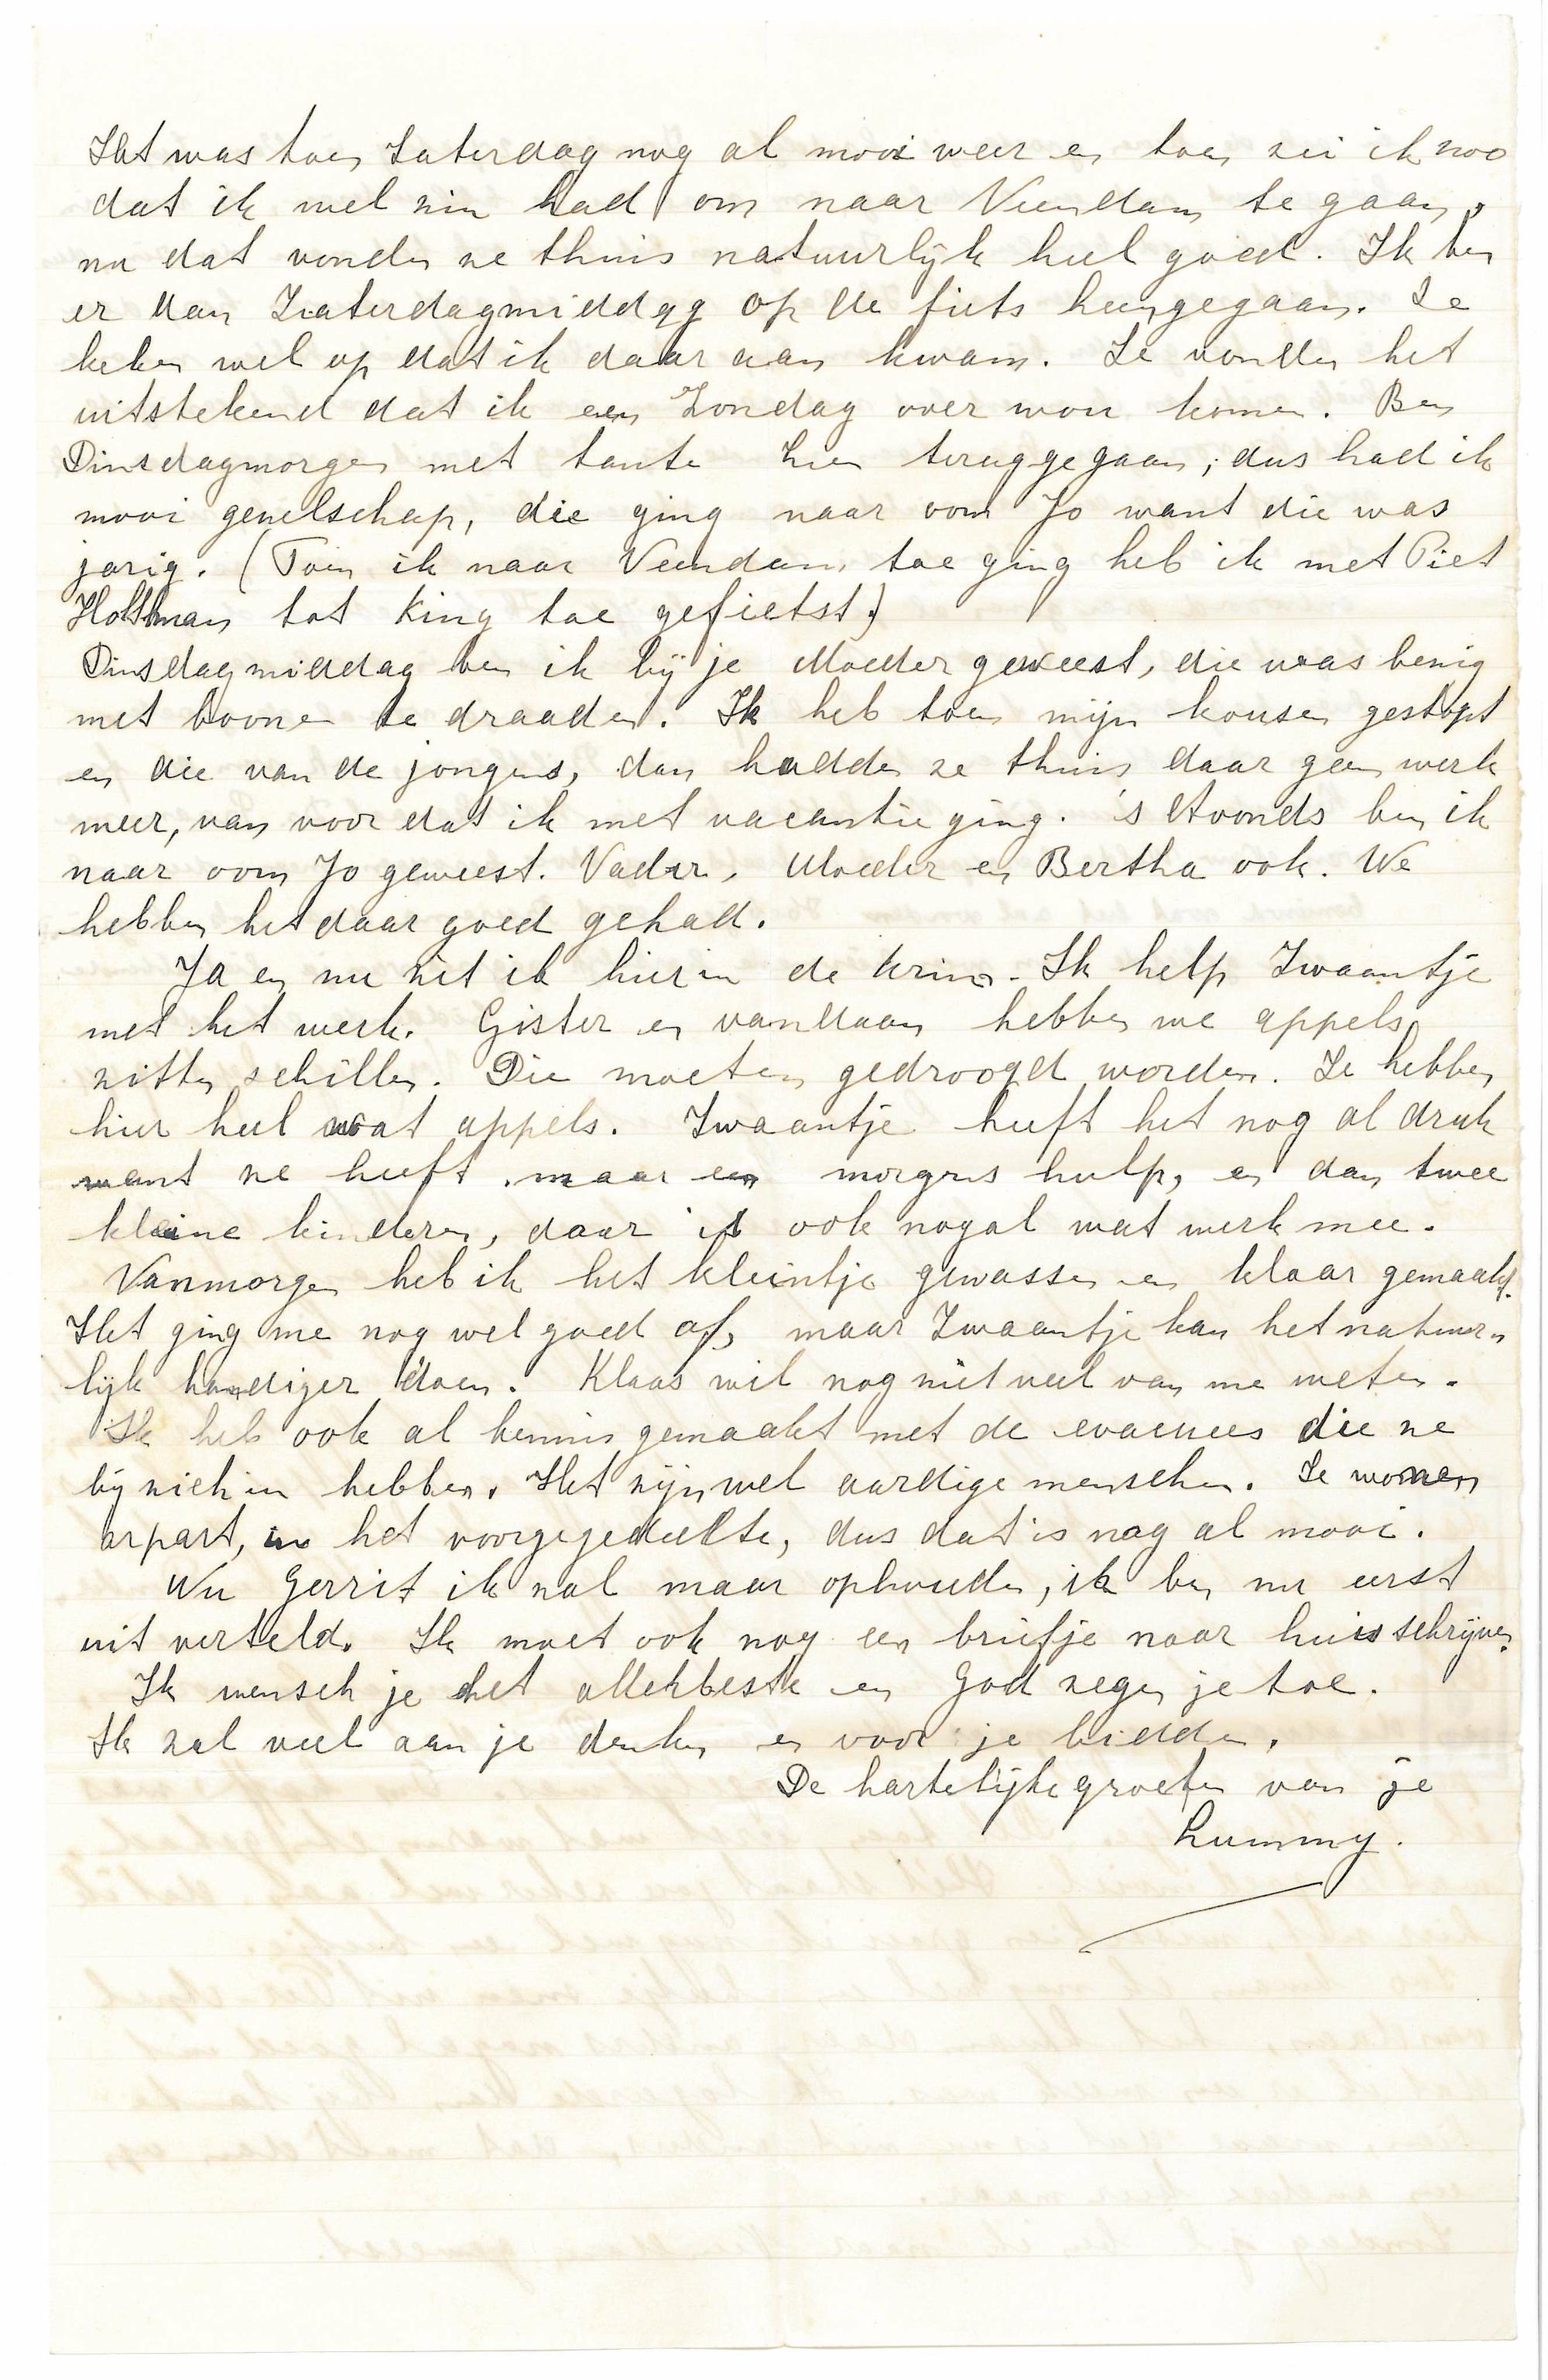 Het was toen Zaterdag nog al mooi weer en toen zei ik zoo
dat ik wel zin had om naar Veendam te gaan,
nu dat vonden ze thuis natuurlijk heel goed. Ik ben
er dan Zaterdagmiddag op de fiets heengegaan. Ze
keken wel op dat ik daar aan kwam. Ze vonden het
uitstekend dat ik een Zondag over wou komen. Ben
Dinsdagmorgen met tante Lien teruggegaan; dus had ik
mooi gezelschap, die ging naar oom Jo want die was
jarig. (Toen ik naar Veendam toe ging heb ik met Piet
Holtman tot King toe gefietst.)
Dinsdagmiddag ben ik bij je Moeder geweest, die was bezig
met boonen te draaden. Ik heb toen mijn kousen gestopt
en die van de jongens, dan hadden ze thuis daar geen werk
meer, van voor dat ik met vacantie ging. 's Avonds ben ik
naar oom Jo geweest. Vader, Moeder en Bertha ook. We
hebben het daar goed gehad.
Ja en nu zit ik hier in de Krim. Ik help Zwaantje
met het werk. Gister en vandaag hebben we appels
zitten schillen. Die moeten gedroogd worden. Ze hebben
hier heel wat appels. Zwaantje heeft het nog al druk
want ze heeft maar een morgens hulp, en dan twee
kleine kinderen, daar is ook nogal wat werk mee.
Vanmorgen heb ik het kleintje gewasschen en klaar gemaakt.
Het ging me nog wel goed af, maar Zwaantje kan het natuur-
lijk handiger doen. Klaas wil nog niet veel van me weten.
Ik heb ook al kennis gemaakt met de evacuees die ze
bij zich in hebben. Het zijn wel aardige menschen. Ze wonen
arpart, in het voorgegedeelte, dus dat is nog al mooi.
Nu Gerrit ik zal maar ophouden, ik ben nu eerst
uit verteld. Ik moet ook nog een briefje naar huis schrijven.
Ik wensch je het allerbeste en God zegen je toe.
Ik zal veel aan je denken en voor je bidden.
De hartelijke groeten van je
Lummy.